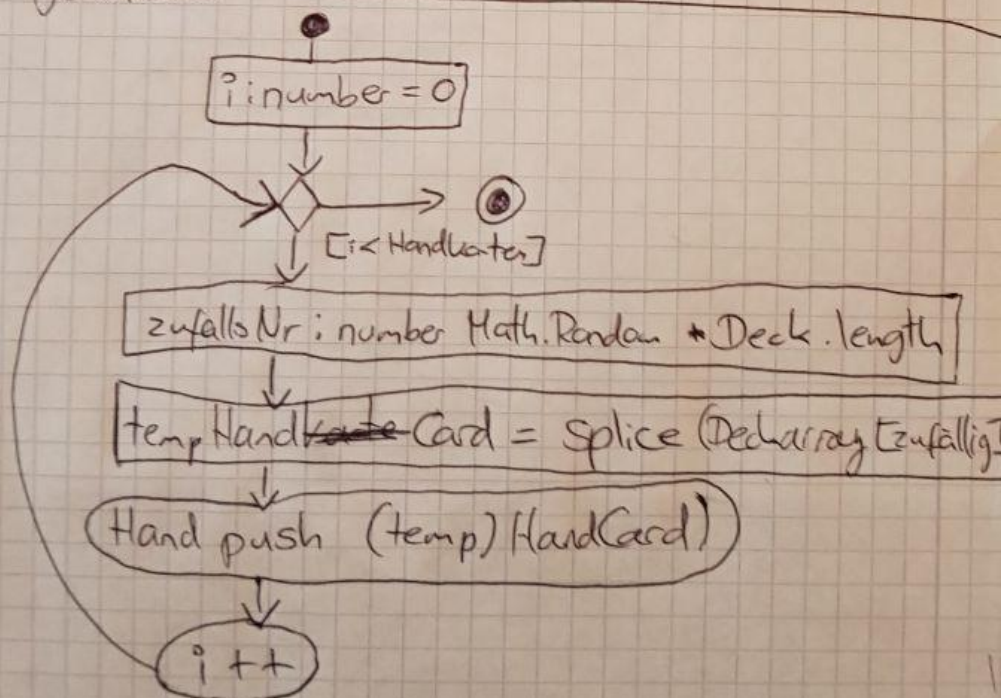 i : number = 0
[i < Handkarten]
zufallsNr : number Math.Random * Deck.length
temp Hand Card = Splice (Deckarray [zufällig]
Hand push (temp) HandCard)
i ++